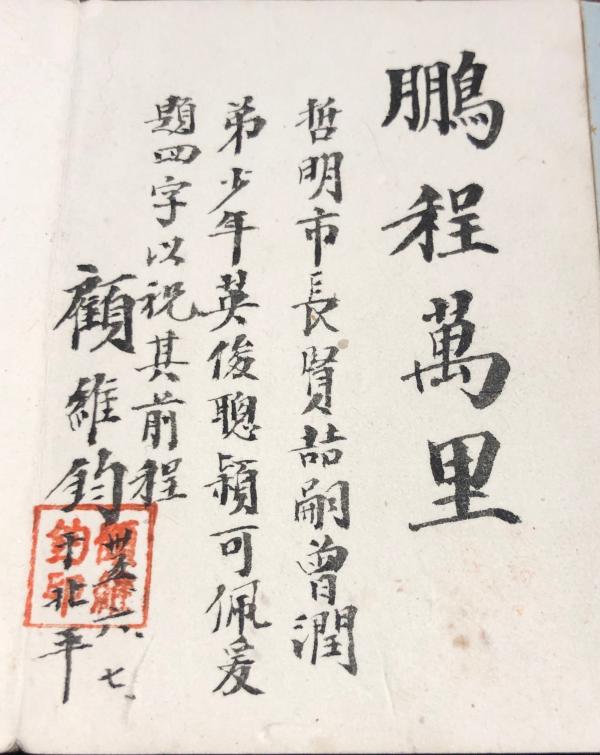 鵬程萬里
哲明市長賢喆嗣曾潤
弟少年英俊聰穎可佩爰
題四字以祝其前程
顧維鈞
卅五、七、
于北平
顧維鈞印